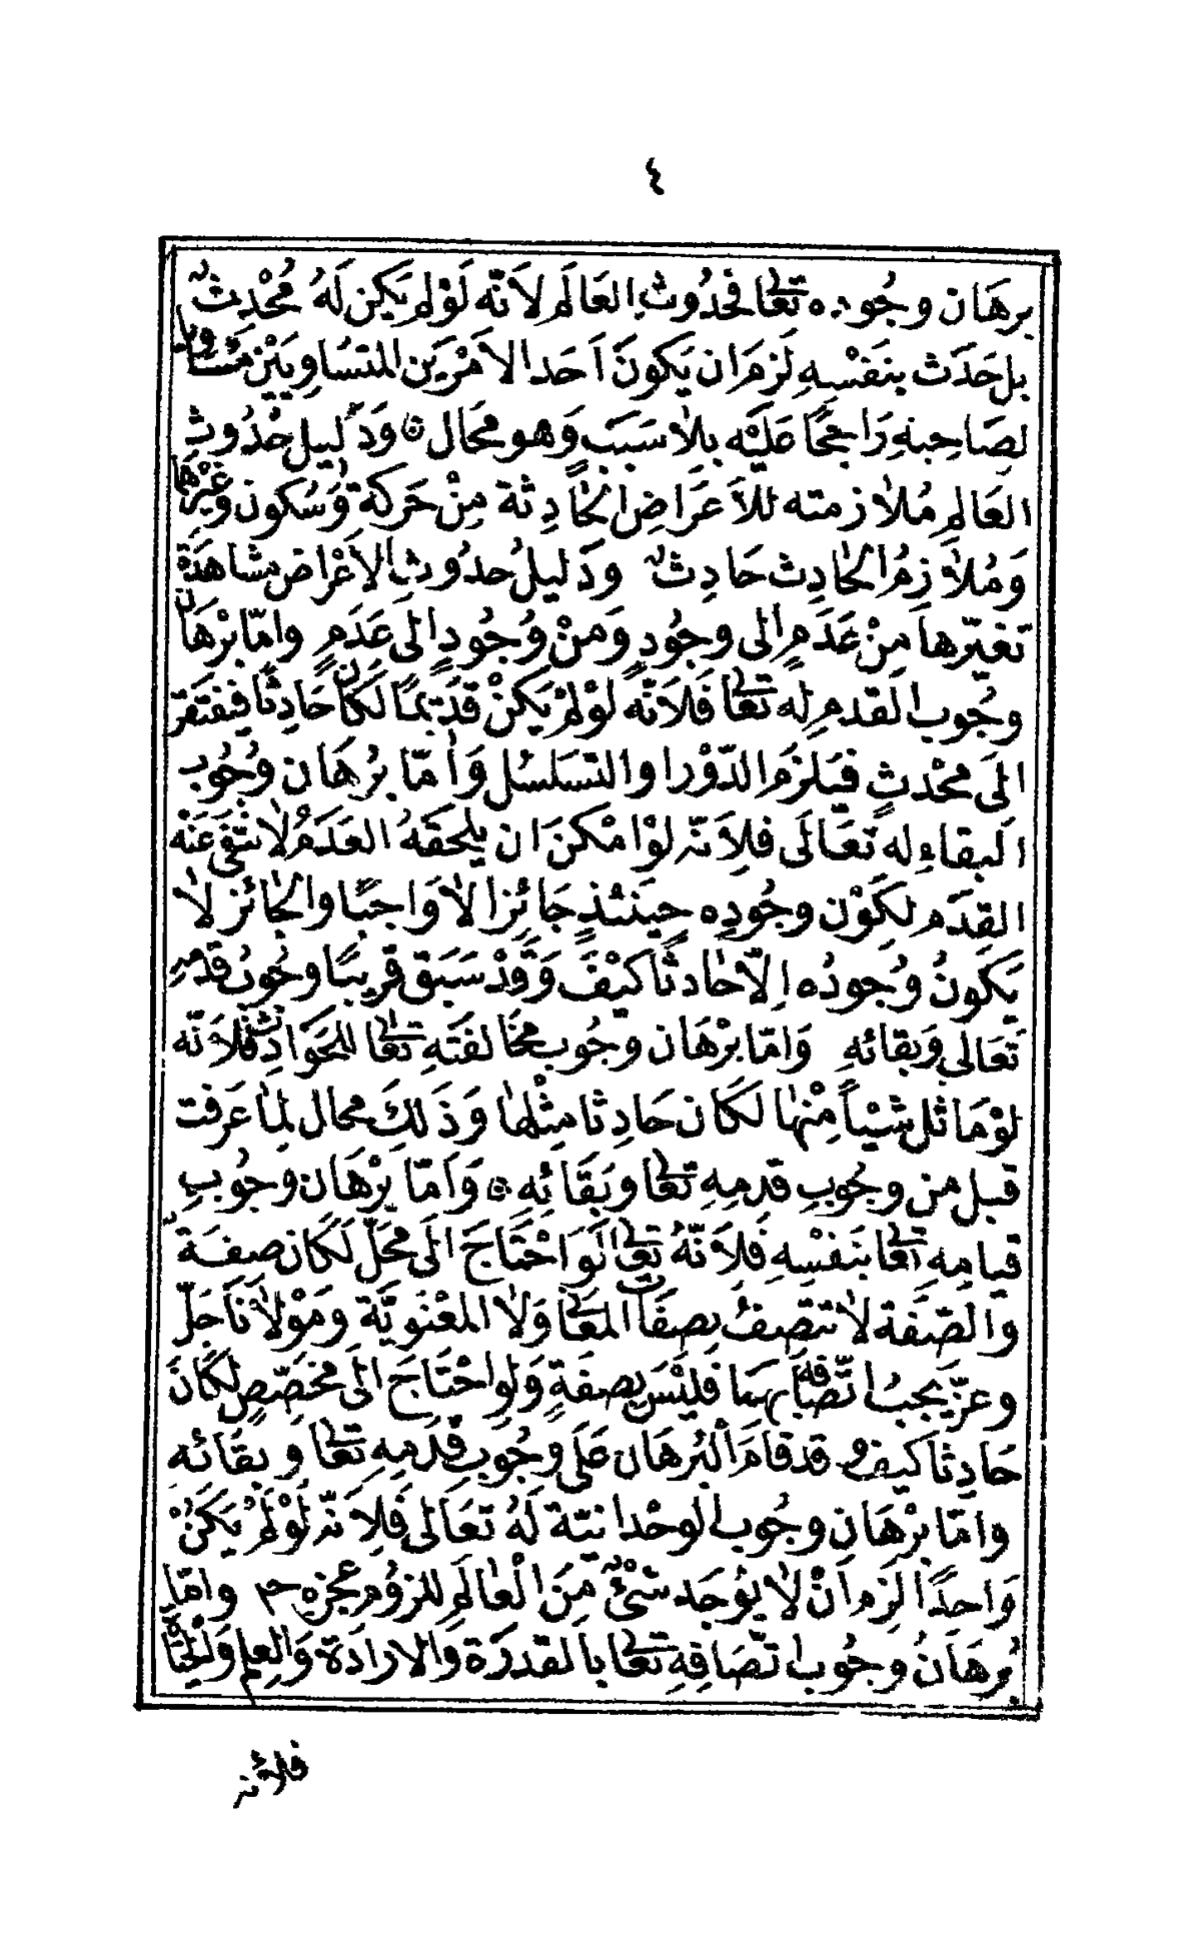 ٤
برهَان وجُوده تعالى فحدُوث العَالَم لاَنّه لَوْلم يَكن لَهُ مُحْدِثٌ
بل حَدَث بنَفْسِهِ لَزمَ ان يَكونَ اَحَد الاَمْرَين المتسَاويَيْن مسَاويا
لصَاحِبهِ رَاجحًا عَليْه بلاَ سَبَب وَهو محَال وَدَليل حُدُوثِ
العَالمِ مُلاَزمته للأعَراضِ الحَادِثة مِنْ حَركة وَسُكون وغَيْرهَا
وَمُلاَزِمُ الحَادِث حَادِثٌ وَدَليلُ حدُوثِ الاَعْراض مشاهَدَة
تغيّرهاَ مِنْ عَدَمٍ الى وجُودٍ وَمنْ وُجُودٍ الى عَدَمٍ وامّا برْهَان
وجُوب القدمِ له تعَالى فَلاَنّه لَوْلمْ يَكنْ قدَيمًا لكَانَ حَادِثًا فيفتَقر
الَى محْدثٍ فيَلزَم الدّوْر او التسَلسُل وَاَمّا بُرْهَان وجُوب
البقاءِ له تعَالَى فلاَنّه لوْ امْكنَ ان يلحَقهُ العَدَمُ لاَنتفَى عَنْه
القِدَم لكَوْن وجُودِه حِينَئذٍ جَائِزا لاَ وَاجبًا والجَائز لاَ
يَكونُ وُجودُه اِلاّ حَادثًا كيْفَ وَقَدْ سَبَق قريبًا وجُوبُ قدَمه
تعَالى وَبقائهِ وَامّا برْهَان وجُوب مخَالفَتهِ تعَالى للحَوادِث فلاَنّه
لوْمَاثل شيْاً مِنْهَا لكَان حَادِثا مِثْلهَا وَذَلكَ محال لمَا عَرفت
قبل من وجُوبِ قدمِهِ تعَالى وبَقَائِهِ وَاَمّا بُرْهَان وجُوبِ
قيامِهِ تعَالى بنَفسْهِ فَلاَنّهُ تعَالى لَوَ احْتَاجَ الَى محَلّ لكَان صفَةً
وَالصّفَة لاَ تتصِفُ بصفَات المعَانى وَلاَ المعْنَويّة ومَوْلاَنَا جَلّ
وعزّ يجبُ اتّصَافه بهمَا فليْسَ بصفَةٍ وَلو احْتَاجَ الى مخَصّصٍ لكَانَ
حَادِثا كيف وقد قامَ البُرهَان عَلَى وجُوبِ قدَمِهِ تعَالى وبقَائه
وامّا برْهَان وجُوب الوحْدانيّة لَهُ تعَالى فَلاَنّه لَوْ لَمْ يَكنْ
وَاحدًا لزم اَنْ لاَ يُوْجَد شئٌ مّنَ العَالَمِ للزوُم عجْزهِ ح وامّا
بُرهَانُ وجُوب اتّصَافِهِ تعَالى باَلقدرَة وَالارادَة وَالعِلم وَالحيَاة
فلأنه